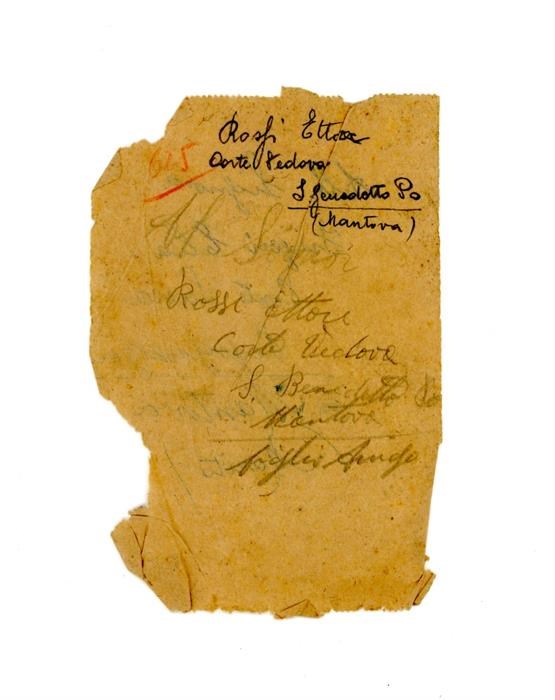 Rossi Ettore
Corte Vedova
S. Benedetto Po
(Mantova)
645
Rossi Ettore
Corte Vedova
S. Benedetto Po
Mantova
figlio